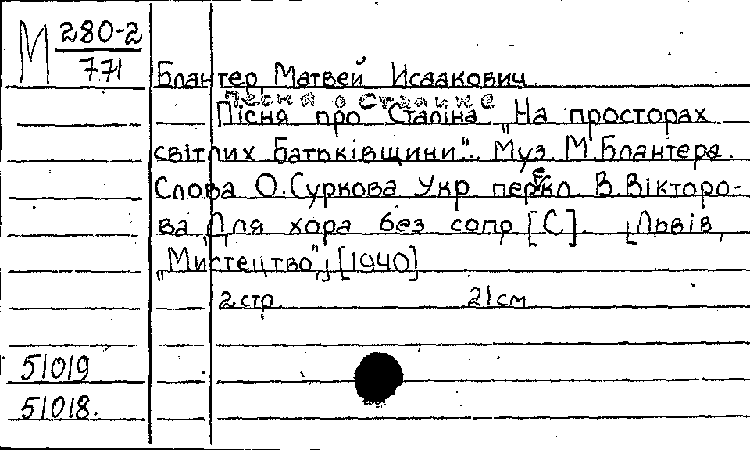 М 280-2
771
Блантер, Матвей Исаакович
Песня о Сталине
Пісня про Сталіна "На просторах
світлих Батьківщини". Муз. М. Блантера.
Слова О. Суркова Укр перекл. В. Вікторо-
ва Для хора без сопр. [С]. [Львів,
"Мистецтво", [1940]
2 стр. 21 см
51019
51018.